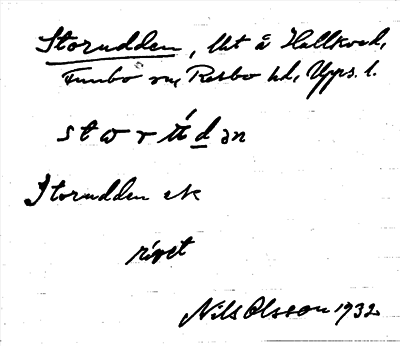 Storudden, lht å Hallkved,
Funbo sn, Rasbo hd, Upps. l.
storúdən
Storudden ek
röjet
Nils Olsson 1932